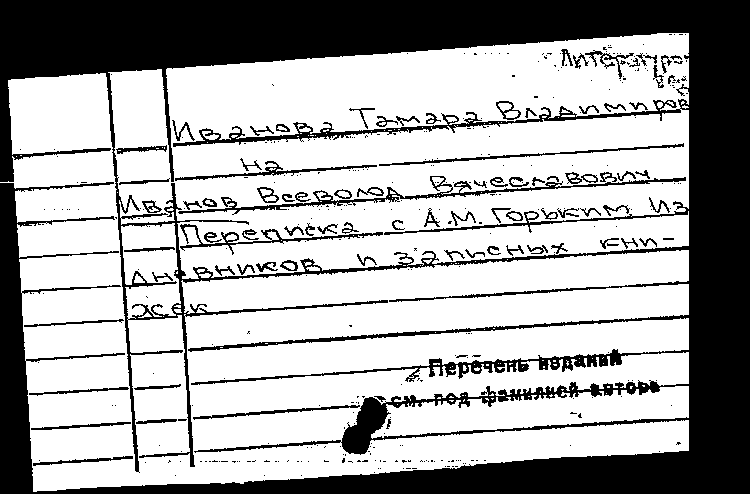 Иванова Тамара Владимиров
на
Иванов Всеволод Вячеславович
Переписка с А.М. Горьким Из
дневников и записных кни-
жек
Перечень изданий
см. под фамилией автора